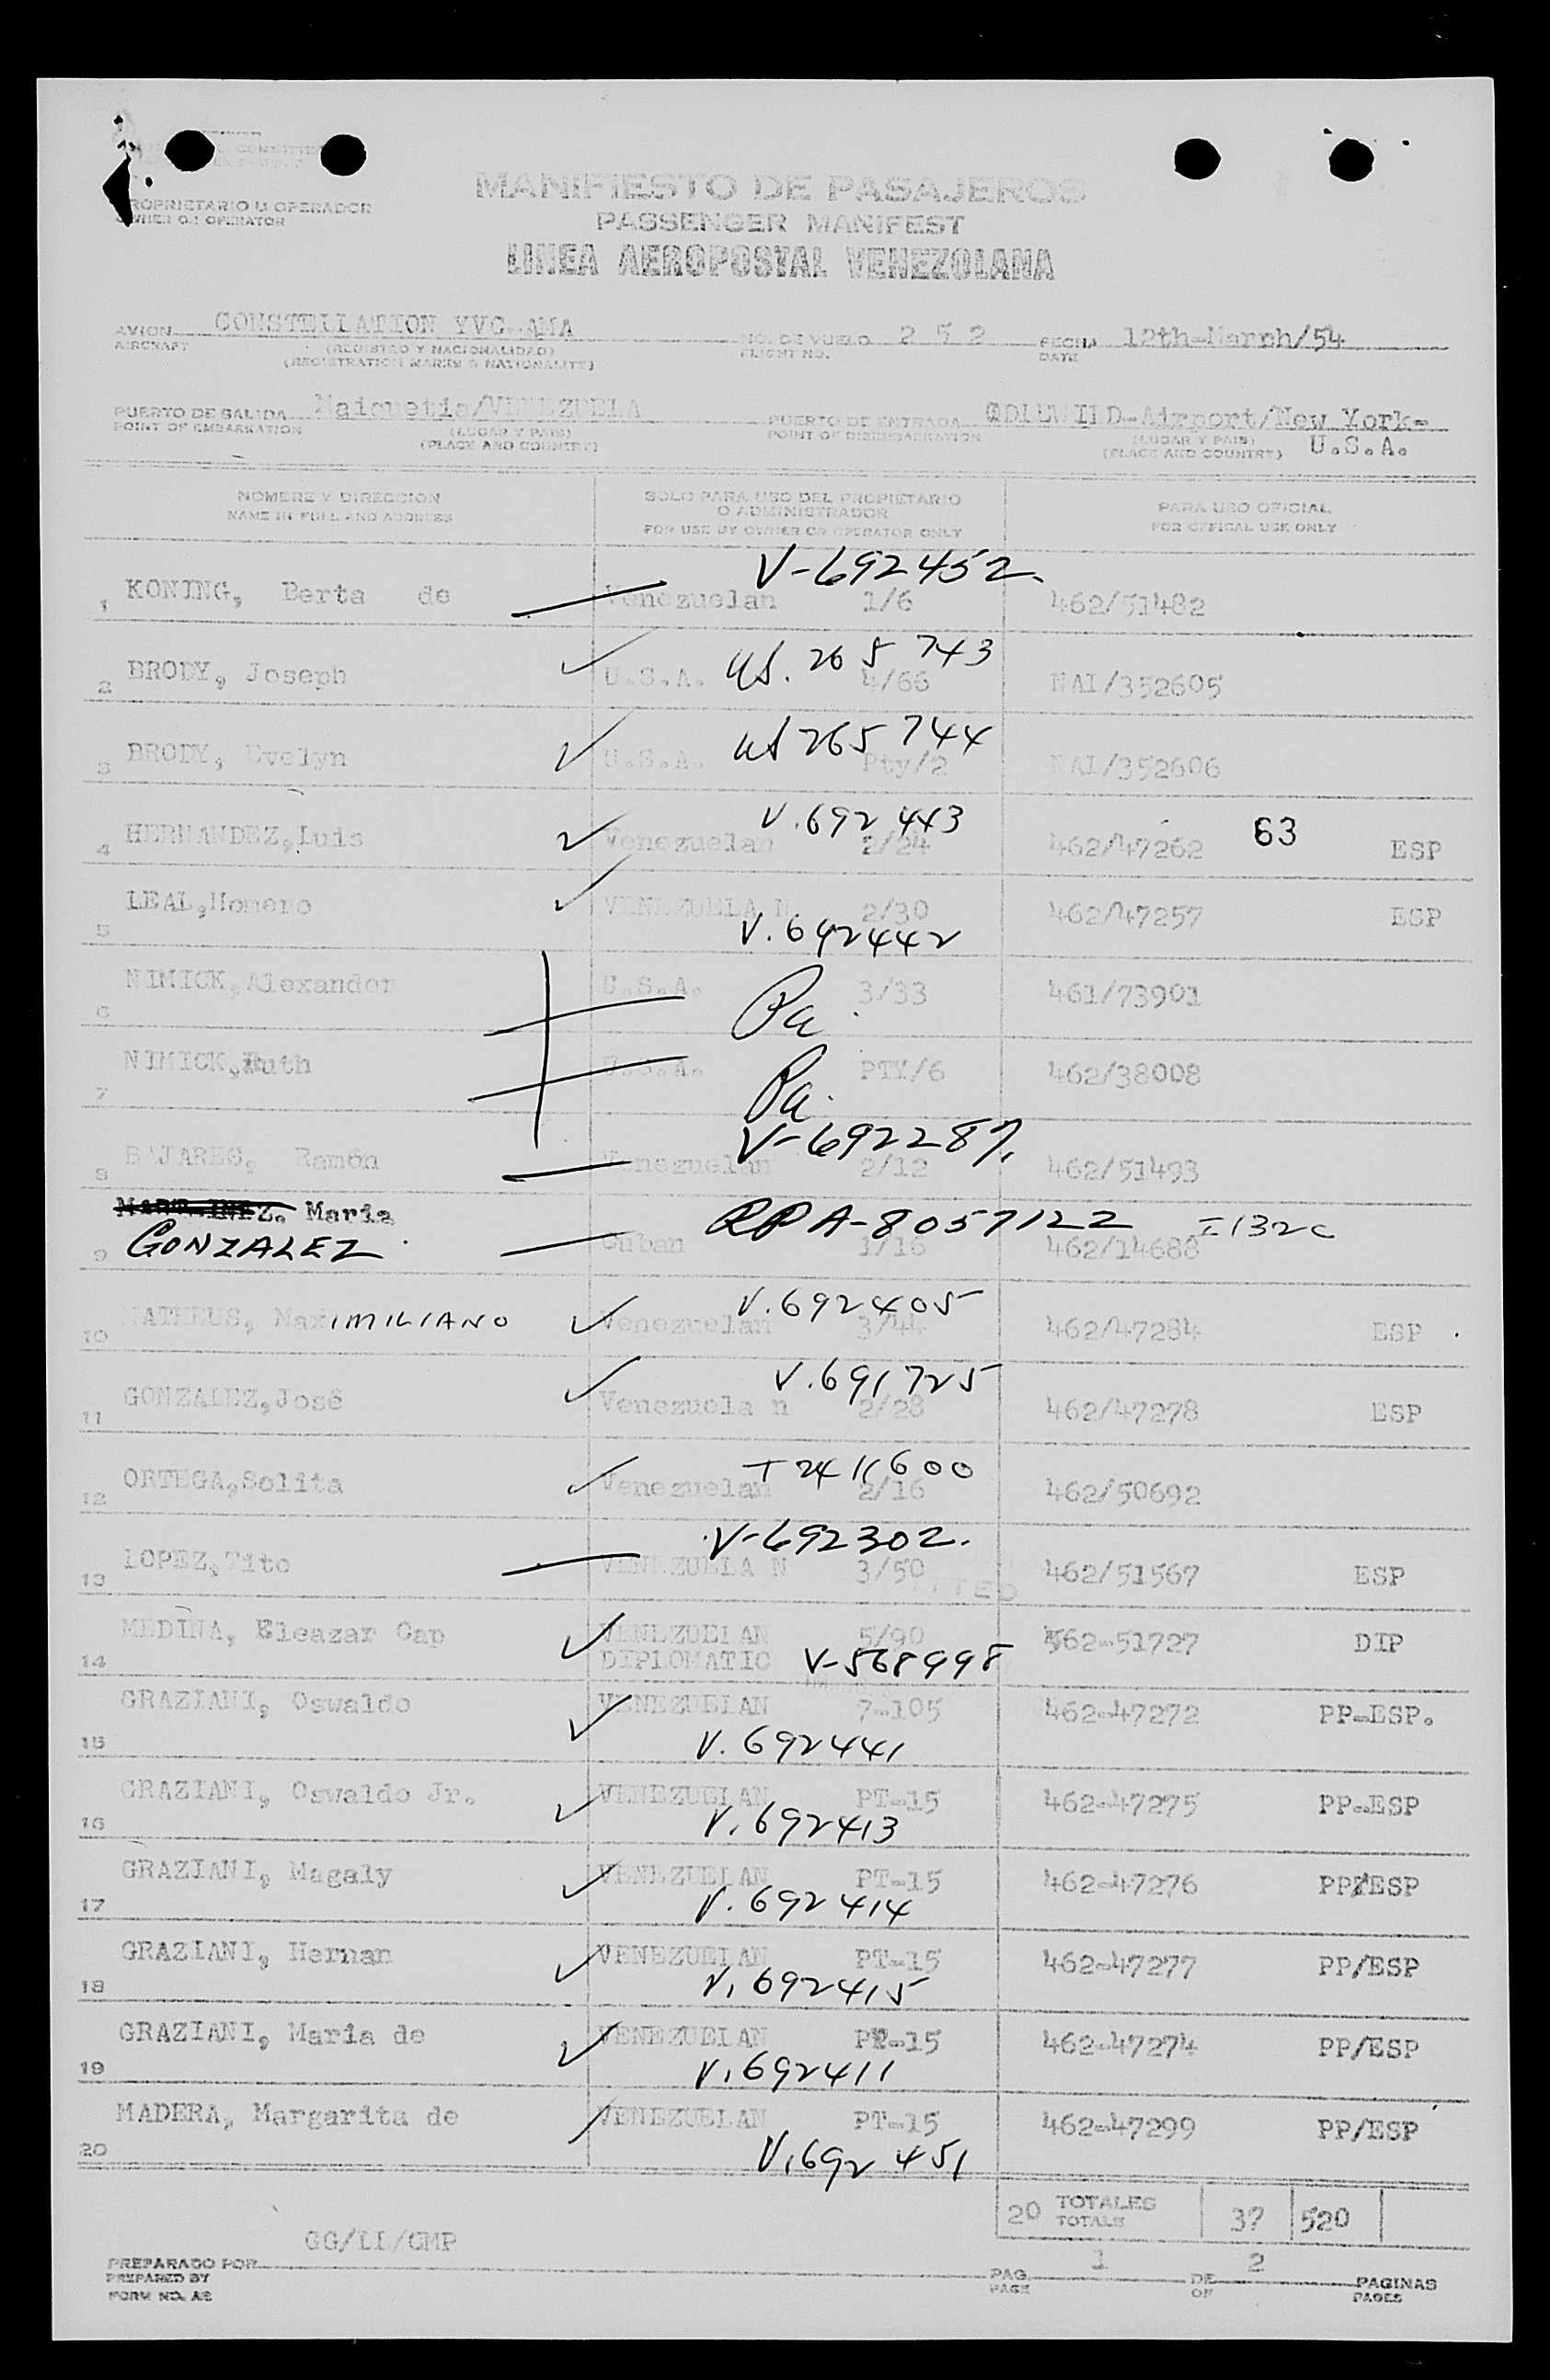 PROPRIETARIO U OPERADOR
OWNER OR OPERATOR
MANIFIESTO DE PASAJEROS
PASSENGER MANIFEST
LINEA AEROPOSTAL VENEZOLANA
AVION CONSTELLATION YVC-AMA NO. DE VUELO 252 FECHA 12th-March/54
AIRCRAFT (REGISTRO Y NACIONALIDAD) FLIGHT NO. DATE
(REGISTRATION MARKS & NATIONALITY)
PUERTO DE SALIDA Maiquetia/VENEZUELA PUERTO DE ENTRADA IDLEWILD-Airport/New York-
POINT OF EMBARKATION (LUGAR Y PAIS) POINT OF DISEMBARKATION (LUGAR Y PAIS) U.S.A.
(PLACE AND COUNTRY) (PLACE AND COUNTRY)
NOMBRE Y DIRECCION SOLO PARA USO DEL PROPIETARIO PARA USO OFICIAL
NAME IN FULL AND ADDRESS O ADMINISTRADOR FOR OFFICAL USE ONLY
FOR USE BY OWNER OR OPERATOR ONLY
V-692452.
1 KONING, Berta de Venezuelan 1/6 462/51482
US. 265 743
2 BRODY, Joseph U.S.A. 4/66 NAI/352605
US 265 744
3 BRODY, Evelyn U.S.A. Pty/2 NAI/352606
V.692 443
4 HERNANDEZ,Luis Venezuelan 2/24 462/47262 63 ESP
5 LEAL,Homero VENEZUELA N 2/30 462/47257 ESP
V.692442
6 NIMICK,Alexander U.S.A. Pa. 3/33 461/73901
7 NIMICK,Ruth U.S.A. Pa. PTY/6 462/38008
V-692287.
8 BAJARES, Ramón Venezuelan 2/12 462/51493
MARTINEZ. Maria RPA-8057122 I132c
9 GONZALEZ Cuban 1/16 462/14688
V.692405
10 MATHEUS, MaxIMILIANO Venezuelan 3/44 462/47284 ESP
V.691725
11 GONZALEZ,José Venezuela n 2/28 462/47278 ESP
T2411600
12 ORTEGA,Solita Venezuelan 2/16 462/50692
V-692302.
13 LOPEZ,Tito VENEZUELA N 3/50 462/51567 ESP
14 MEDINA, Eleazar Cap VENEZUELAN 5/90 562-51727 DIP
DIPLOMATIC V-568998
15 GRAZIANI, Oswaldo VENEZUELAN 7-105 462-47272 PP-ESP.
V.692441
16 GRAZIANI, Oswaldo Jr. VENEZUELAN PT-15 462-47275 PP-ESP
V.692413
17 GRAZIANI, Magaly VENEZUELAN PT-15 462-47276 PP/ESP
V.692414
18 GRAZIANI, Hernan VENEZUELAN PT-15 462-47277 PP/ESP
V.692415
19 GRAZIANI, Maria de VENEZUELAN PT-15 462-47274 PP/ESP
V.692411
20 MADERA, Margarita de VENEZUELAN PT-15 462-47299 PP/ESP
V.692 451
20 TOTALES 37 520
TOTALS
GG/LL/CMP
PREPARADO POR PAG. 1 DE 2 PAGINAS
PREPARED BY PAGE OF PAGES
FORM NO. A2